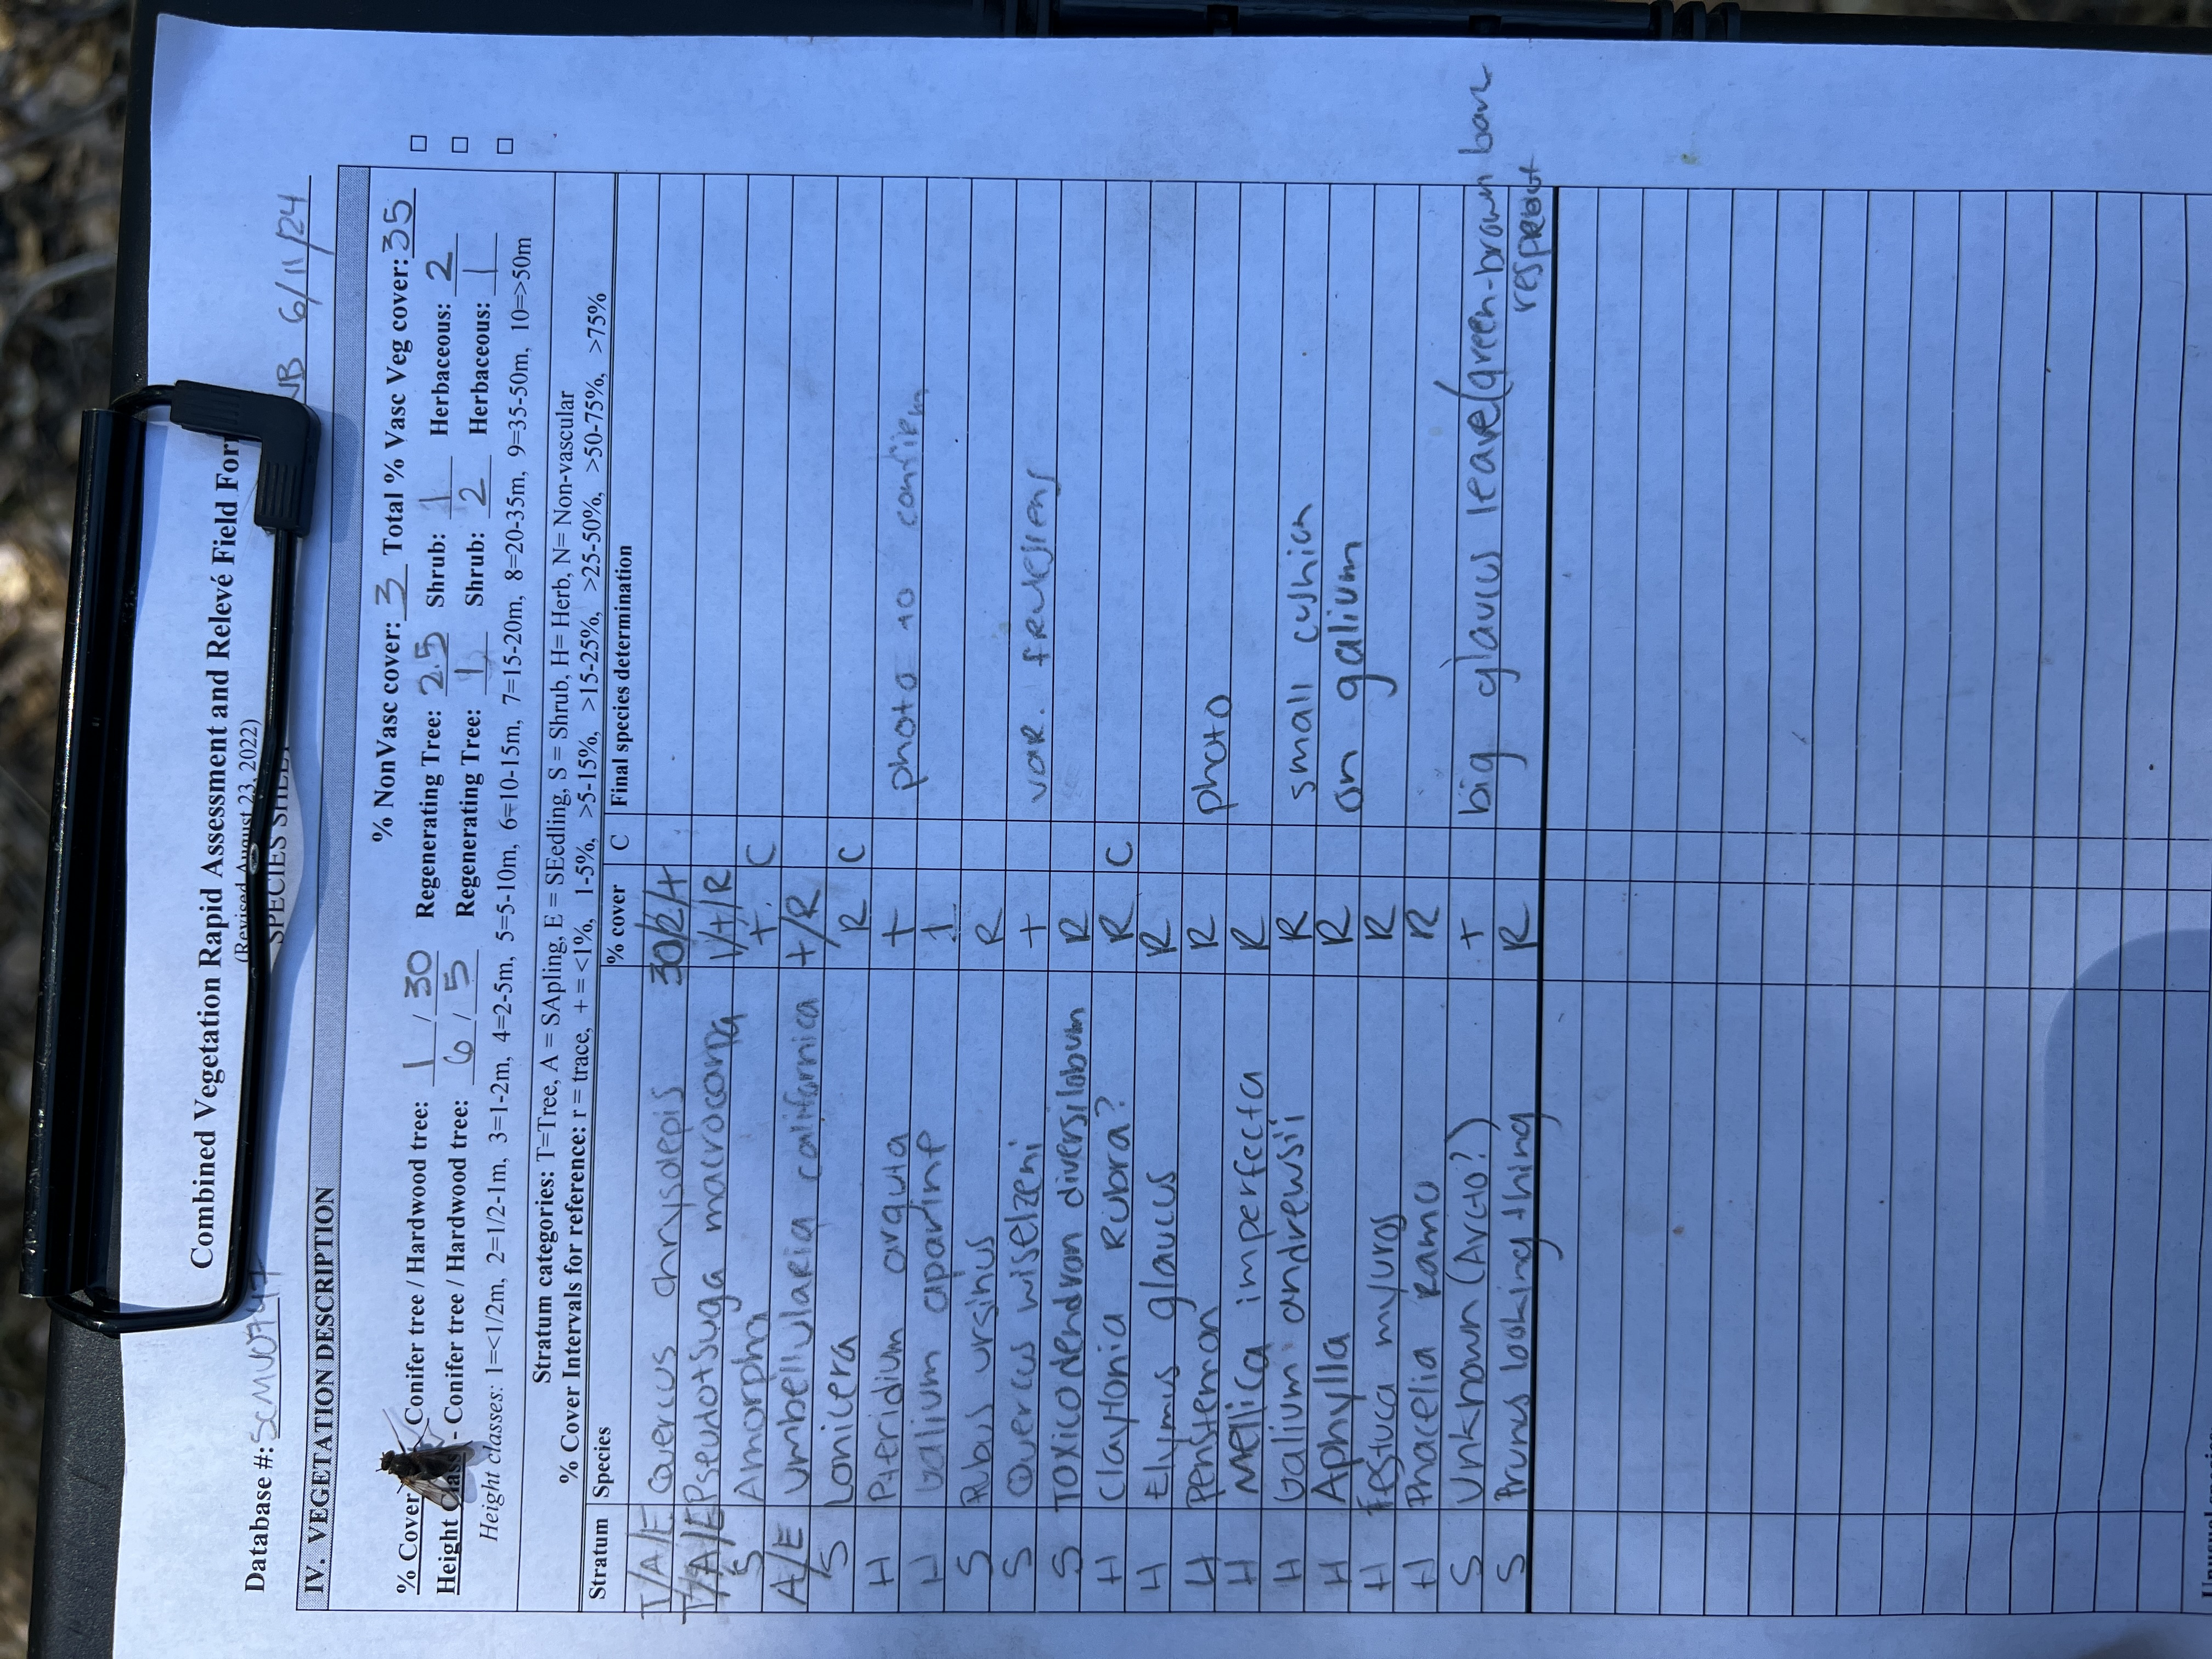 Combined Vegetation Rapid Assessment and Relevé Field For
(Revised August 23, 2022)
Database #: SCMV0747 SPECIES SHEET NB 6/11/24
IV. VEGETATION DESCRIPTION
% NonVasc cover: 3 Total % Vasc Veg cover: 35
% Cover Conifer tree / Hardwood tree: 1 / 30 Regenerating Tree: 2.5 Shrub: 1 Herbaceous: 2 □
Height Class - Conifer tree / Hardwood tree: 6 / 5 Regenerating Tree: 1 Shrub: 2 Herbaceous: 1 □
Height classes: 1=<1/2m, 2=1/2-1m, 3=1-2m, 4=2-5m, 5=5-10m, 6=10-15m, 7=15-20m, 8=20-35m, 9=35-50m, 10=>50m □
Stratum categories: T=Tree, A = SApling, E = SEedling, S = Shrub, H= Herb, N= Non-vascular
% Cover Intervals for reference: r = trace, + = <1%, 1-5%, >5-15%, >15-25%, >25-50%, >50-75%, >75%
Stratum Species % cover C Final species determination
T/A/E Quercus chrysolepis 30/2/+
T/A/E Pseudotsuga macrocarpa 1/+/R
S Amorpha + C
A/E Umbellularia californica +/R
S Lonicera R C
H Pteridium +
H Galium aparine 1 photo no confirm
S Rubus ursinus R
S Quercus wislzeni + var. frutescens
S Toxicodendron diversilobum R
H Claytonia Rubra? R C
H Elymus glaucus R
H Penstemon R photo
H Mellica imperfecta R
H Galium andrewsii R small cushion
H Aphylla R on galium
H Festuca myuros R
H Phacelia Ramo R
S Unknown (Arcto?) + big glaucus leave (green-brown bark
S Prunus looking thing R resprout